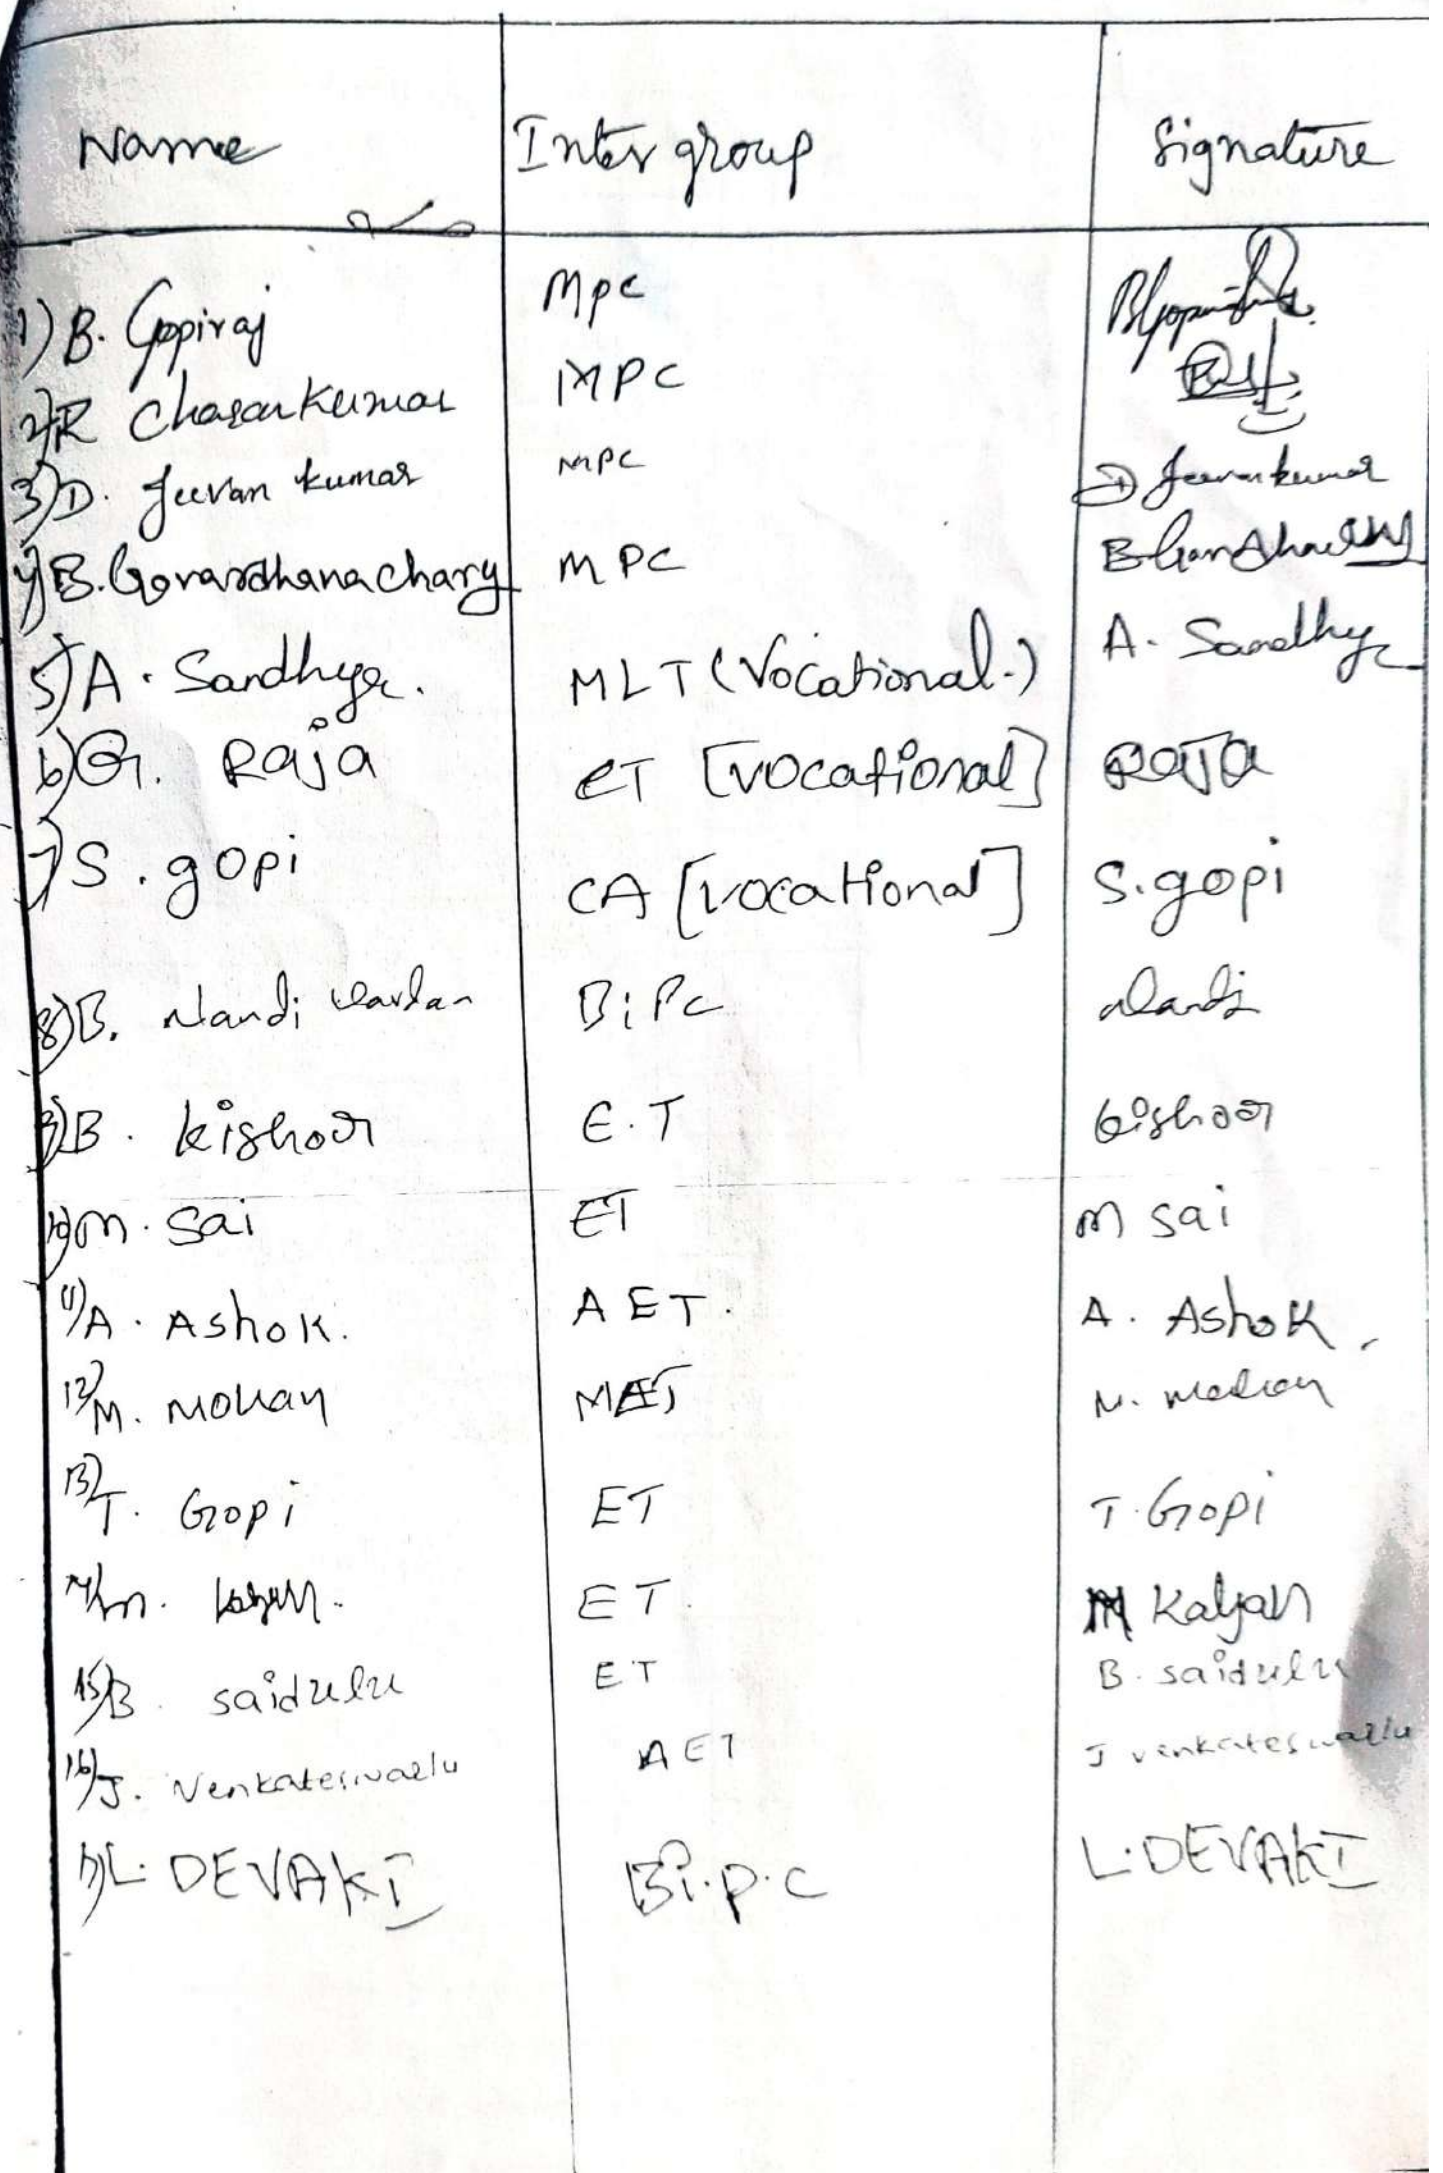 Name Inter group Signature
1) B. Gopiraj MPC
2) R Charan Kumar MPC
3) D. Jeevan kumar MPC D Jeevan kumar
4) B. Govardhanachary MPC
5) A. Sandhya. MLT (Vocational.) A. Sandhya
6) G. Raja ET [Vocational] RAJA
7) S. gopi CA [vocational] S. gopi
8) B. Nandi Vardan BiPc Nandi
9) B. Kishoor E.T Kishoor
10) M. Sai ET M Sai
11) A. Ashok. AET. A. Ashok.
12) M. Mohan M. Mohan
13) T. Gopi ET T. Gopi
14) M. ET. M Kalyan
15) B. saidulu ET B. saidulu
16) J. Venkateswarlu AET J venkateswarlu
17) L. DEVAKI Bi.P.C L. DEVAKI